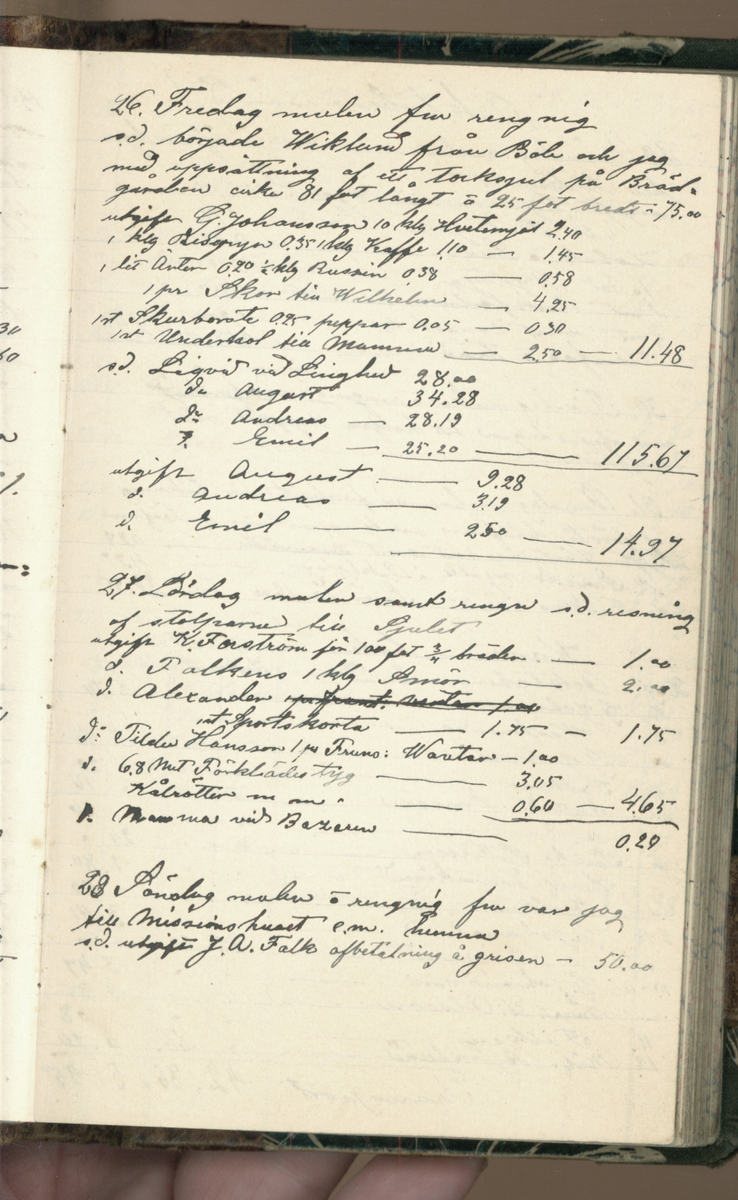 26. Fredag mulen fm rengnig
s.d. började Wiklund från Böle och jag
med uppsättning af ett torkskjul på Bräd-
gården cirka 81 fot långt å 25 fot bredt : 75.00
utgift G. Johansson 10 klg Hvetemjöl 2.40
1 klg Risgryn 0.35 1 klg Kaffe 1.10 — 1.45
1 lit Ärter 0.20 ½ klg Russin 0.38 — 0.58
1 pr Skor till Wilhelm — 4.25
1st Skurborste 0.25 peppar 0.05 — 0.30
1st Underkol till Mamma — 2.50 — 11.48
s.d. Liqvid vid Linghed 28.00
do August 34.28
do Andreas — 28.19
d. Emil — 25.20 — 115.67
utgift August — 9.28
d. Andreas — 3.19
d. Emil — 2.50 — 14.97
27. Lördag mulen samt rengn s.d. resning
af stolparne till Sjulet
utgift K. Forsström för 100 fot ¾ bräden — 1.00
d. Falkens 1 klg Smör — 2.00
d. Alexander 1.00
1st Sportskorta — 1.75 — 1.75
do Tilda Hansson 1 pr Fruns: Wantar — 1.00
d. 6.8 Met Förklädestyg — 3.05
Kålrötter m m — 0.60 — 4.65
d. Mamma vid Bazaren — 0.20
28 Söndag mulen å rengnig fm var jag
till Missionshuset e.m. hemma
s.d. utgift J. A. Falk afbetalning å grisen — 50.00